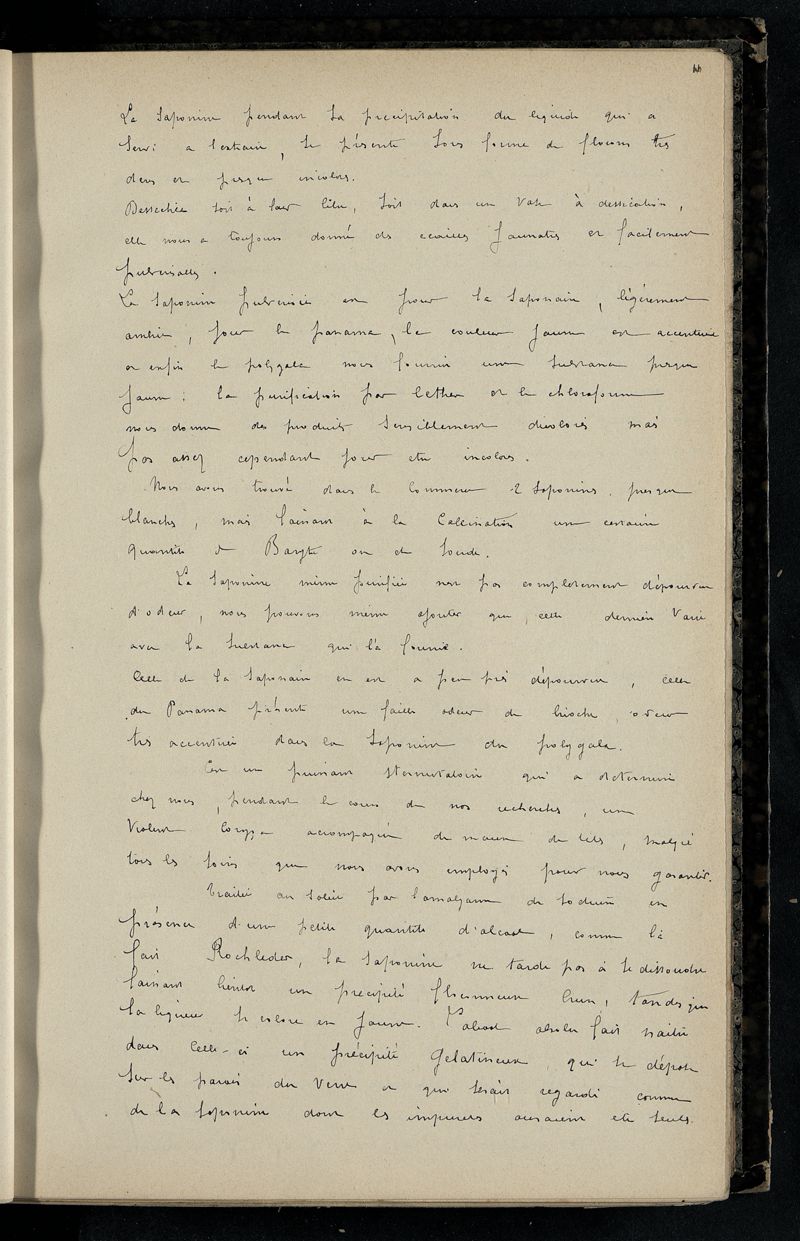 La Saponine pendant sa précipitation du liquide qui a
servi a l'extraire, se présente sous forme de flocons très
dens et presque incolores.
Dessechée soit à l'air libre, soit dans un vase à dessication,
elle nous a toujours donné des ecailles jaunatres et facilement
pulverisables.
La Saponine pulverisée est pour la Saponaire, légérement
ambrée, pour le panama, la couleur jaune est accentuée
et enfin le polygala nous fournit une substance presque
jaune; la purification par l'ether et le chloroforme
nous donne des produits sensiblement décolorés mais
pas assez cependant pour etre incolores.
Nous avons trouvé dans le commerce 2 saponines presque
blanches, mais laissant à la Calcination une certaine
quantité de Baryte ou de Soude.
La Saponine même purifiée n'est pas completement dépourvue
d'odeur, nous pouvons même ajouter que, cette dernière varie
avec la substance qui l'a fournie.
Celle de la Saponaire en est a peu près dépourvue, celle
du Panama présente une faible odeur de brioche, odeur
très accentuée dans la Saponine du polygala.
Est un puissant sternutatoire qui a determiné
chez nous, pendant le cours de nos recherches, un
violent Coryza accompagné de maux de tete, malgré
tous les soins que nous avons employés pour nous garantir.
Traitée au Soleil par l'amalgame de sodium en
présence d'une petite quantité d'alcool, comme l'a
fait Rochleder, la Saponine ne tarde pas à se dissoudre
laissant bientot un précipité floconneux brun, tandis que
la liqueur se colore en jaune. L'alcool absolu fait naitre
dans celle-ci un précipité gelatineux, qui se dépose
sur les parois du verre et qui serait regardé comme
de la saponine dont les impuretés auraient été seules